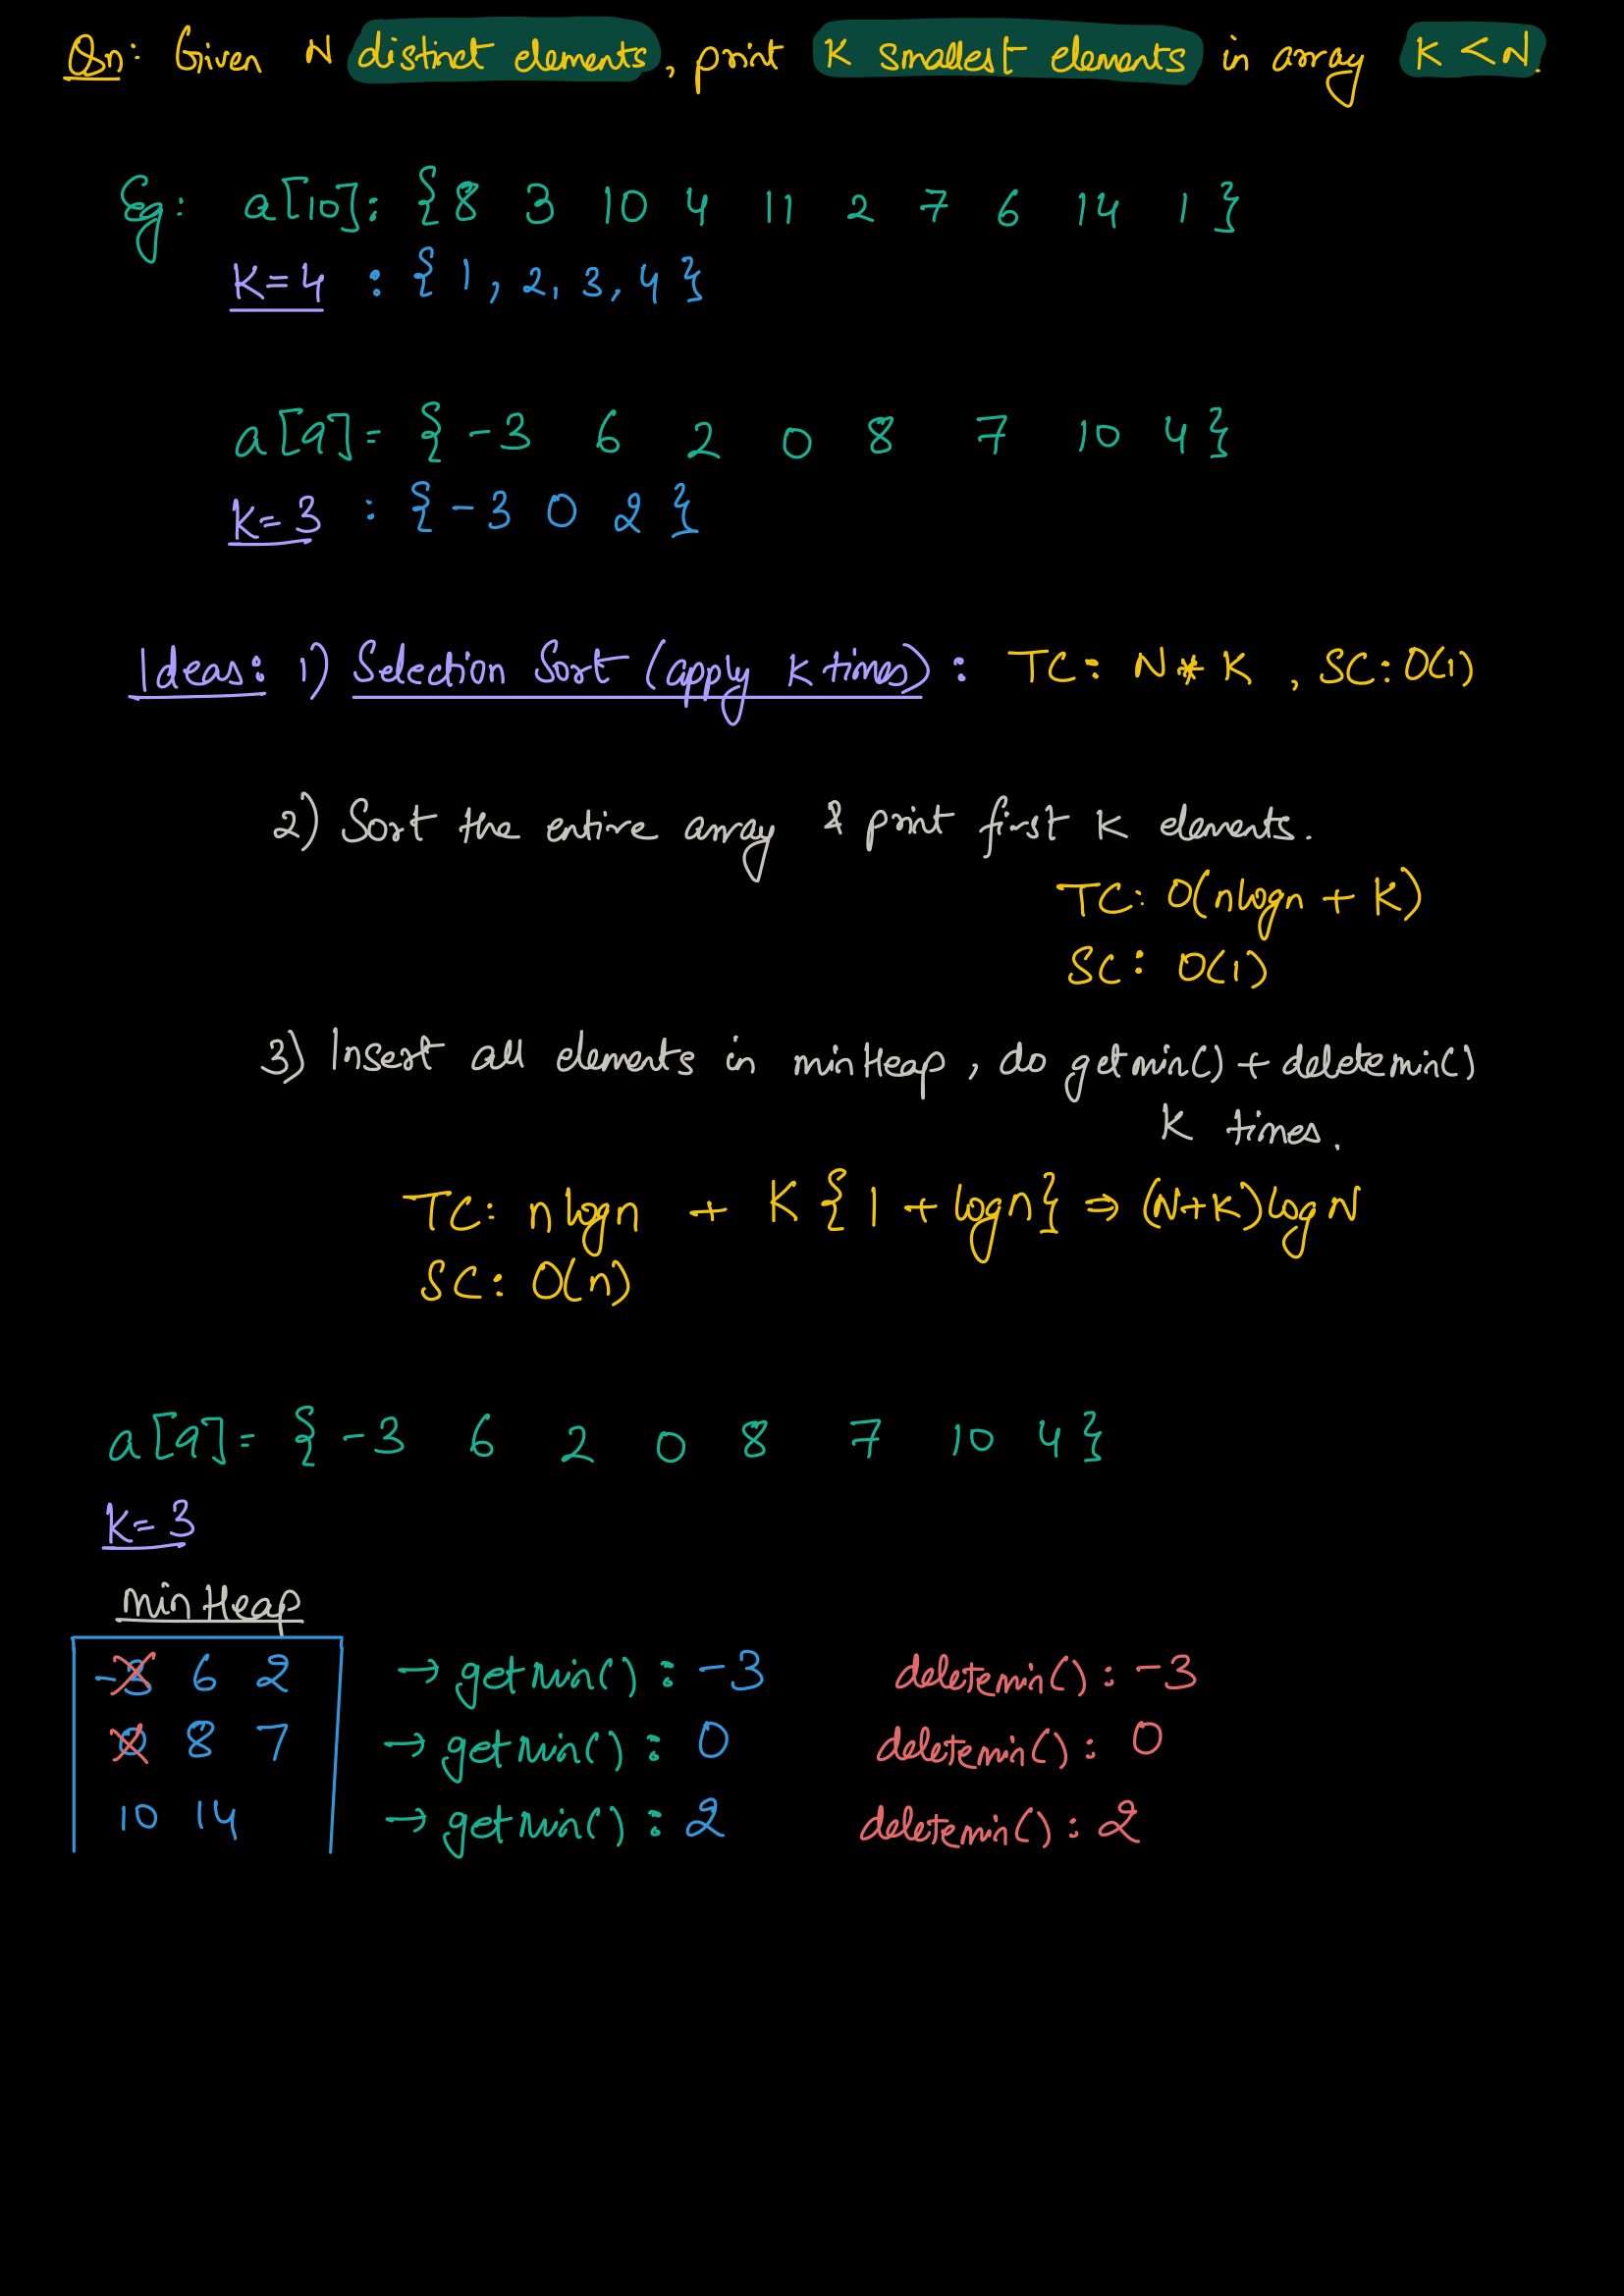 Qn: Given N distinct elements, print K smallest elements in array K < N.
Eg: a[10]: {8 3 10 4 11 2 7 6 14 1}
K=4 : {1, 2, 3, 4}
a[9]= {-3 6 2 0 8 7 10 4}
K=3 : {-3 0 2}
Ideas: 1) Selection Sort (apply K times) : TC: N * K , SC: O(1)
2) Sort the entire array & print first K elements.
TC: O(nlogn + K)
SC: O(1)
3) Insert all elements in minHeap, do getmin() + deletemin()
K times.
TC: nlogn + K {1 + logn} ⇒ (N+K)logN
SC: O(n)
a[9]= {-3 6 2 0 8 7 10 4}
K=3
minHeap
-3 6 2 → getmin() : -3 deletemin() : -3
0 8 7 → getmin() : 0 deletemin() : 0
10 14 → getmin() : 2 deletemin() : 2